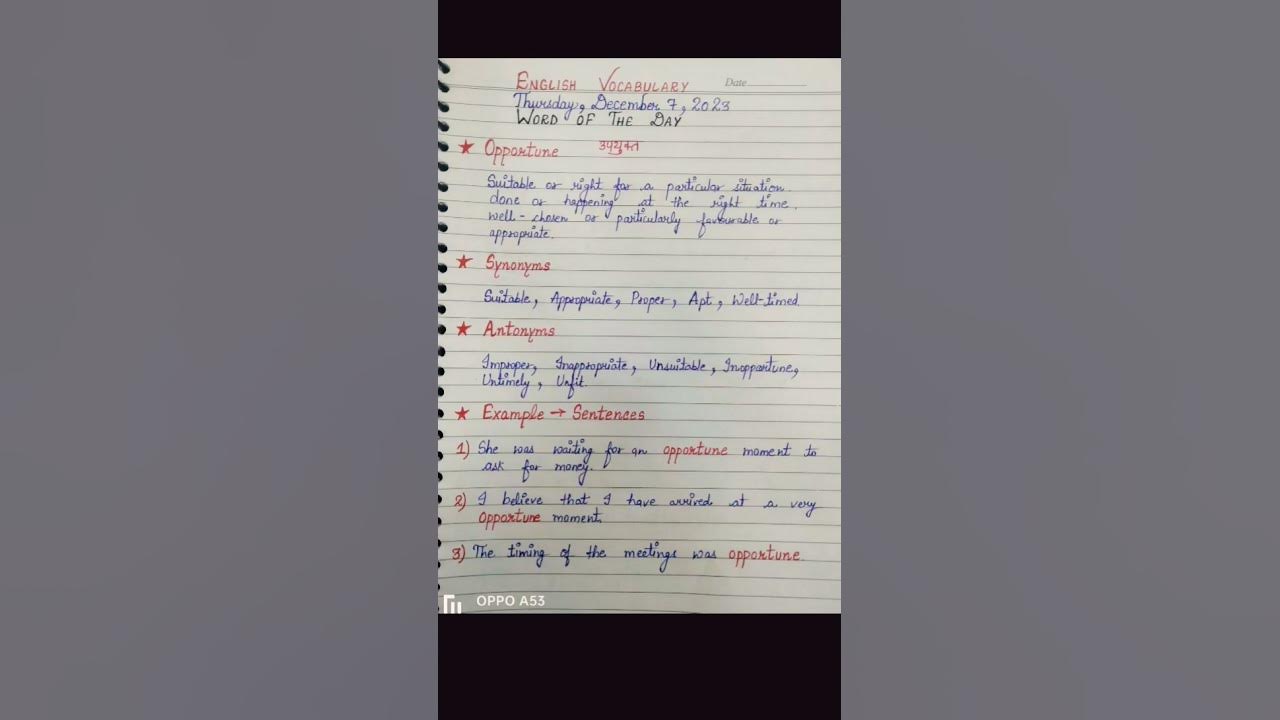 ENGLISH VOCABULARY Date
Thursday, December 7, 2023
WORD OF THE DAY
★ Opportune उपयुक्त
Suitable or right for a particular situation.
done or happening at the right time.
well-chosen or particularly favourable or
appropriate.
★ Synonyms
Suitable, Appropriate, Proper, Apt, Well-timed.
★ Antonyms
Improper, Inappropriate, Unsuitable, Inopportune,
Untimely, Unfit.
★ Example → Sentences
1) She was waiting for an opportune moment to
ask for money.
2) I believe that I have arrived at a very
opportune moment.
3) The timing of the meetings was opportune.
OPPO A53